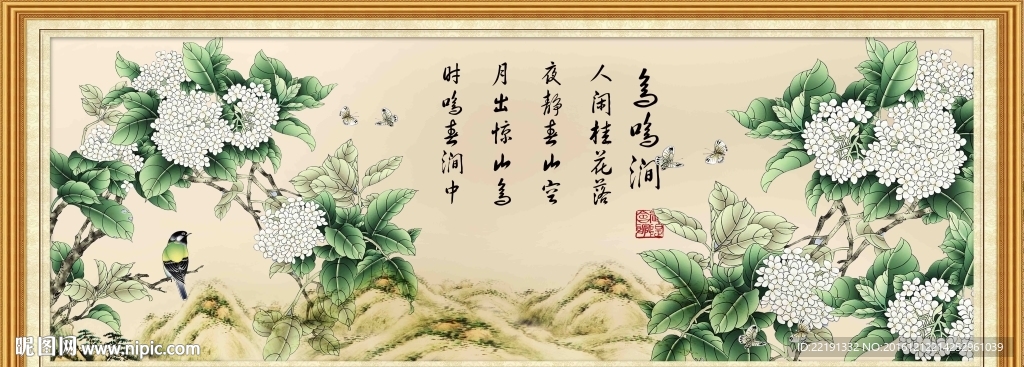 鸟鸣涧
人闲桂花落
夜静春山空
月出惊山鸟
时鸣春涧中
昵图网 www.nipic.com
ID:22191332 NO:20161212214252961039